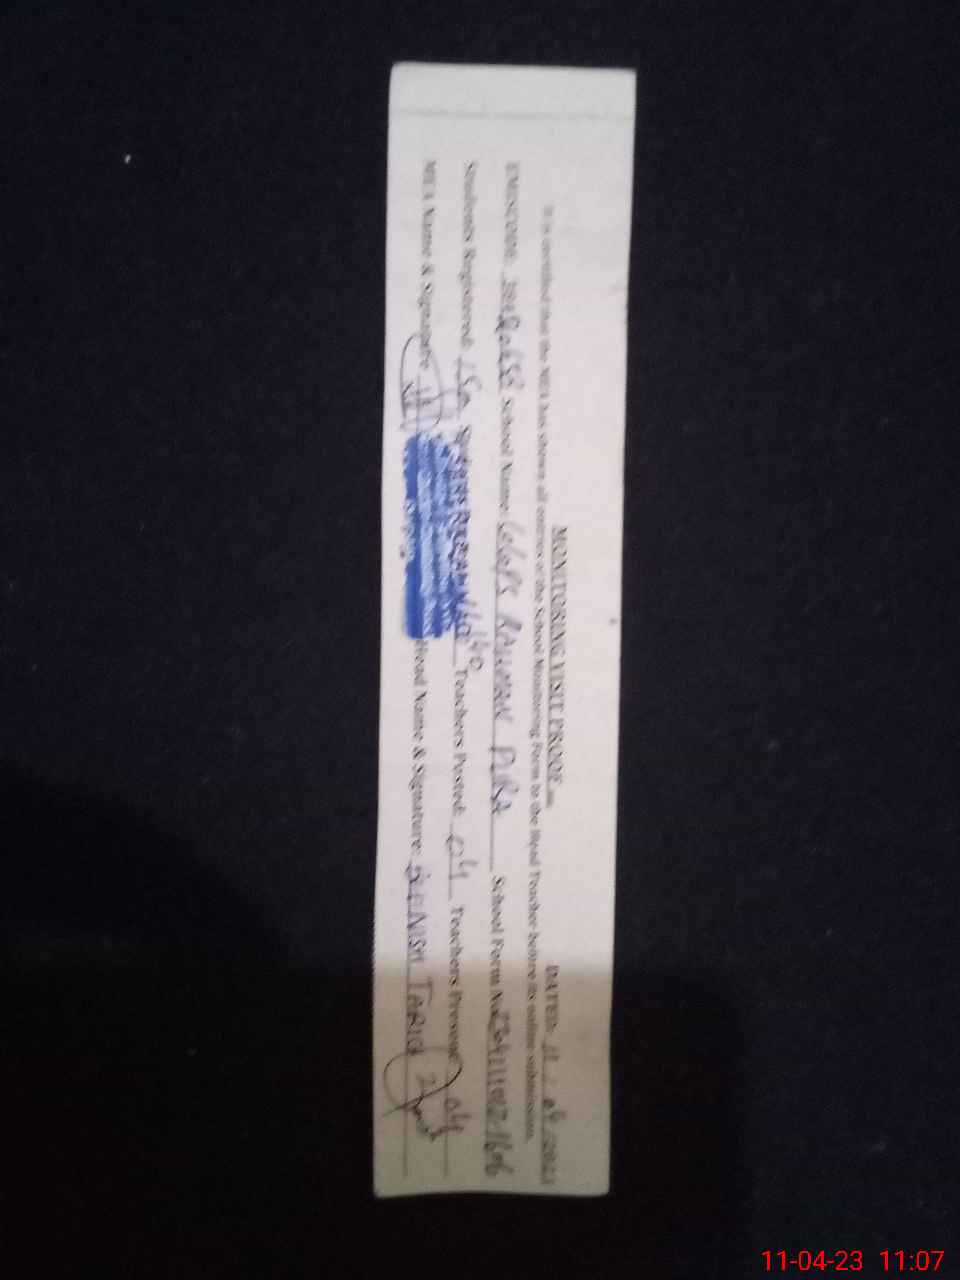 MONITORING VISIT PROOF
DATED: 11 / 04 / 2023
It is certified that the MEA has shown all entries of the School Monitoring Form to the Head Teacher before its online submission.
EMISCODE: School Name: RAHMAN PURA School Form No.
Students Registered: 150 Students Present: 140 Teachers Posted: 04 Teachers Present: 04
MEA Name & Signature: Head Name & Signature: TARIQ
11-04-23 11:07